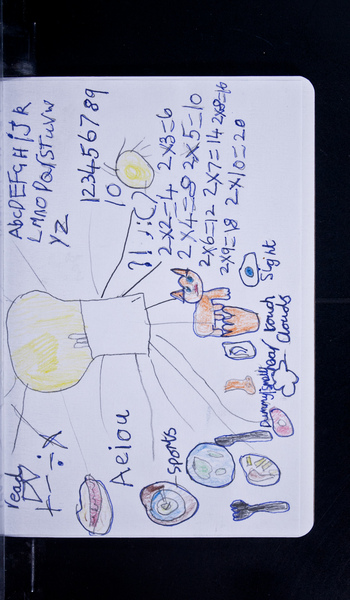 read
+ - ÷ x
Aeiou
sports
AbCDEFGHIJK
LMNOPQrstuvw
YZ
123456789
10
?! .,:;()
2x2=4 2x3=6
2x4=8 2x5=10
2x6=12 2x7=14 2x8=16
2x9=18 2x10=20
Sight
touch
hear
clouds